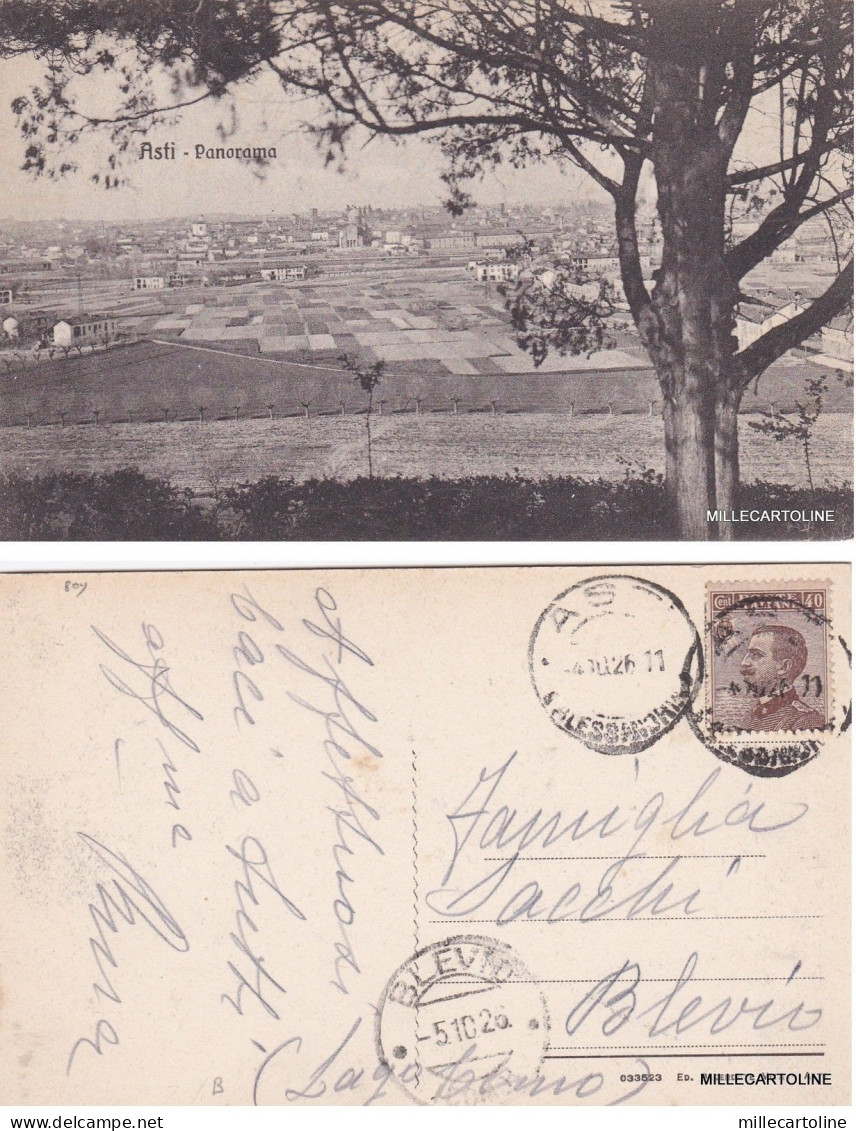 Asti - Panorama
MILLECARTOLINE
804
Affettuosi
baci a tutti
aff.ma
B
AS
-4.10.26 11
(ALESSANDRIA)
Cent 40
Famiglia
Sacchi
Blevio
(Lago Como)
BLEVIO
-5.10.26
033523 ED.
MILLECARTOLINE
www.delcampe.net
millecartoline